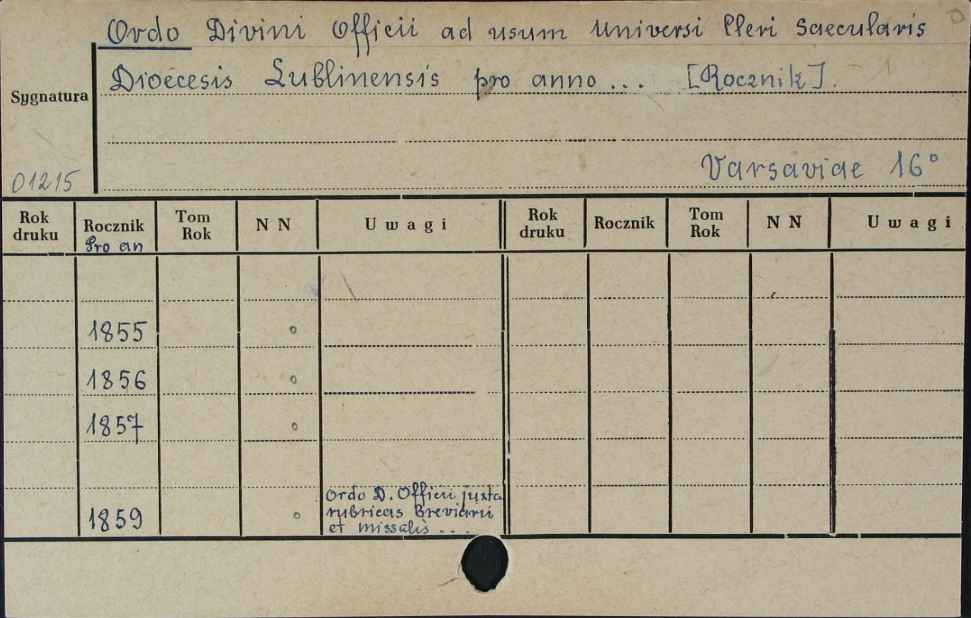 Ordo Divini Officii ad usum Universi Cleri Saecularis
Dioecesis Lublinensis pro anno ... [Rocznik].
Sygnatura
Varsaviae 16°
01215
Rok druku Rocznik Pro an Tom Rok N N Uwagi Rok druku Rocznik Tom Rok N N Uwagi
1855 o
1856 o
1857 o
Ordo D. Officii juxta
rubricas Breviarii
1859 o et missalis ...